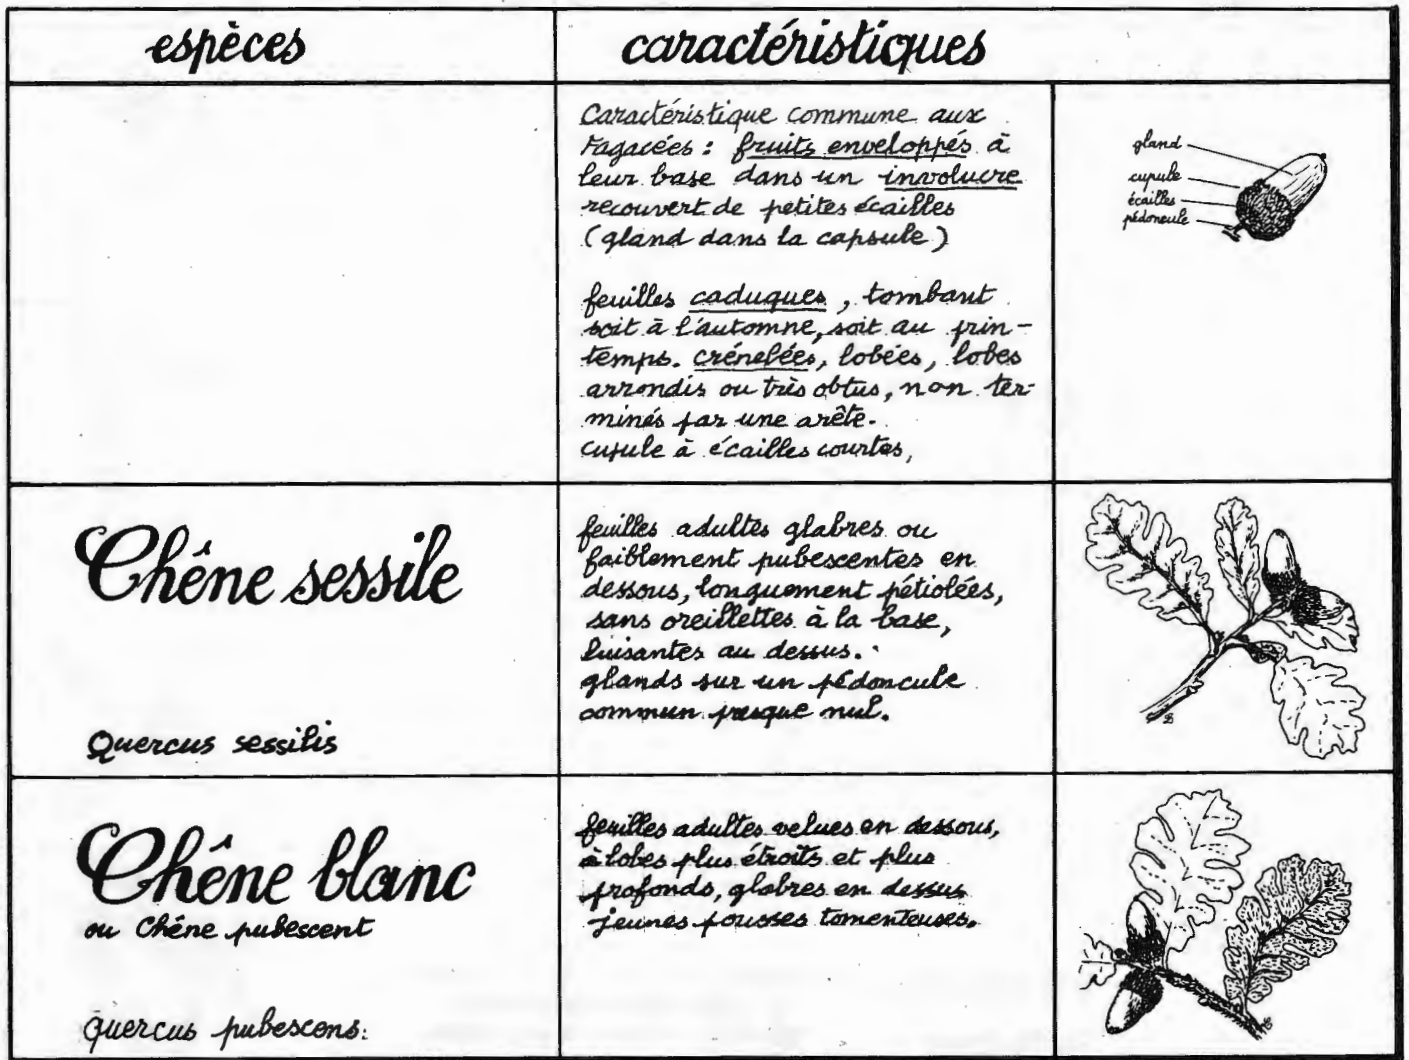 espèces
caractéristiques
Caractéristique commune aux
Fagacées : fruits enveloppés à
leur base dans un involucre
recouvert de petites écailles
(gland dans la capsule)
feuilles caduques, tombant
soit à l'automne, soit au prin-
temps. crénelées, lobées, lobes
arrondis ou très obtus, non ter-
minés par une arête.
cupule à écailles courtes,
gland
cupule
écailles
pédoncule
Chêne sessile
Quercus sessilis
feuilles adultes glabres ou
faiblement pubescentes en
dessous, longuement pétiolées,
sans oreillettes à la base,
luisantes au dessus.
glands sur un pédoncule
commun presque nul.
Chêne blanc
ou Chêne pubescent
Quercus pubescens.
feuilles adultes velues en dessous,
à lobes plus étroits et plus
profonds, glabres en dessus
jeunes pousses tomenteuses.